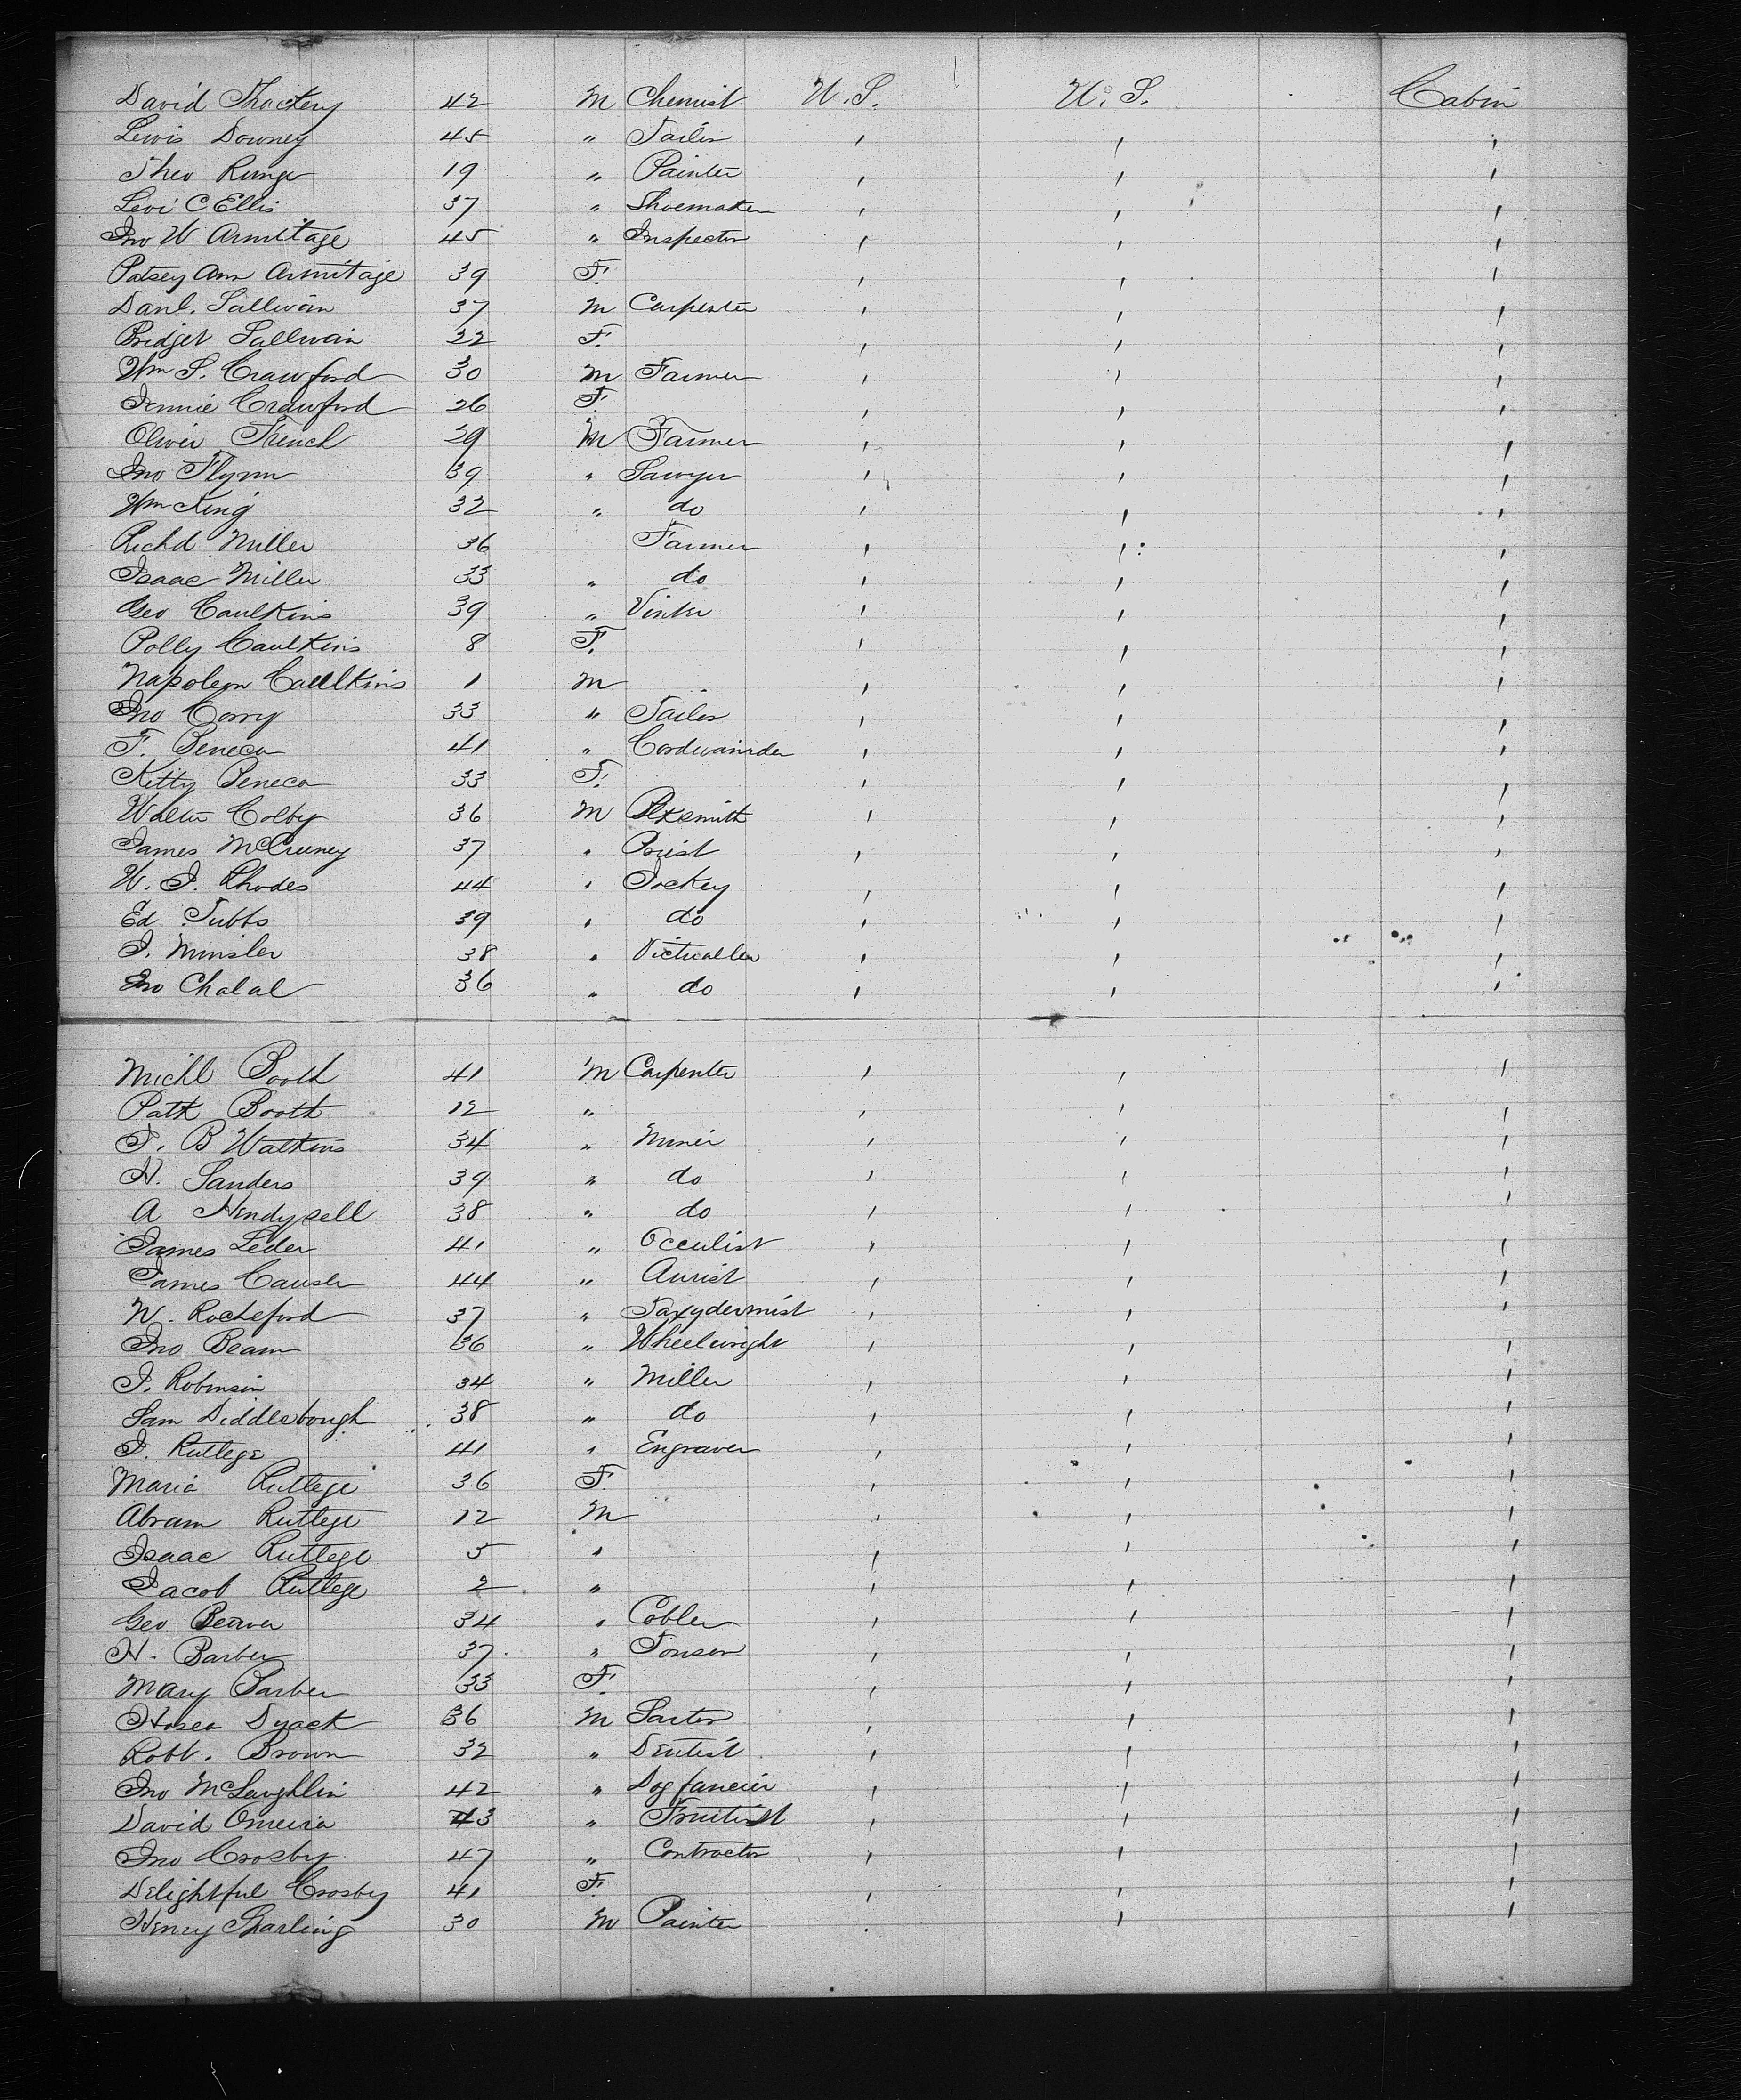 David Thackery 42 M Chemist U.S. U.S. Cabin
Lewis Downey 45 " Tailor ' ' '
Theo Runge 19 " Painter ' ' '
Levi C Ellis 37 " Shoemaker ' ' '
Jno W Armitage 45 " Inspector ' ' '
Patsey Ann Armitage 39 F. ' ' '
Danl. Sullivan 37 M Carpenter ' ' '
Bridget Sullivan 22 F. ' ' '
Wm S. Crawford 30 M Farmer ' ' '
Jennie Crawford 26 F. ' ' '
Oliver French 29 M Farmer ' ' '
Jno Flynn 39 " Sawyer ' ' '
Wm King 32 " do ' ' '
Richd Miller 36 Farmer ' ' '
Isaac Miller 33 " do ' ' '
Geo Caulkins 39 " Vintner ' ' '
Polly Caulkins 8 F. ' ' '
Napoleon Caulkins 1 M ' ' '
Jno Corry 33 " Tailor ' ' '
F. Seneca 41 " Cordwainder ' ' '
Kitty Seneca 33 F. ' ' '
Walter Colby 36 M Blksmith ' ' '
James McCreeney 37 " Priest ' ' '
W. J. Rhodes 44 " Jockey ' ' '
Ed. Tubbs 39 " do ' ' '
J. Minsler 38 " Victualler ' ' '
Jno Chalal 36 " do ' ' '
Michl Booth 41 M Carpenter ' ' '
Patk Booth 12 " ' ' '
T. B Watkins 34 " Miner ' ' '
H. Sanders 39 " do ' ' '
A Hendysell 38 " do ' ' '
James Leder 41 " Occulist ' ' '
James Causer 44 " Aurist ' ' '
W. Rocheford 37 " Taxydermist ' ' '
Jno Beam 36 " Wheelwright ' ' '
J. Robinson 34 " Miller ' ' '
Sam Diddlebough 38 " do ' ' '
J. Rutlege 41 " Engraver ' ' '
Maria Rutlege 36 F. ' ' '
Abram Rutlege 12 M ' ' '
Isaac Rutlege 5 " ' ' '
Jacob Rutlege 2 " ' ' '
Geo Beaver 34 " Cobler ' ' '
H. Barber 37 " Tonsor ' ' '
Mary Barber 33 F. ' ' '
Hosea Dyack 36 M Sartor ' ' '
Robt. Brown 32 " Dentist ' ' '
Jno McLaughlin 42 " Dog fancier ' ' '
David Omeira 43 " Fruitist ' ' '
Jno Crosby 47 " Contractor ' ' '
Delightful Crosby 41 F. ' ' '
Henry Sparling 30 M Painter ' ' '